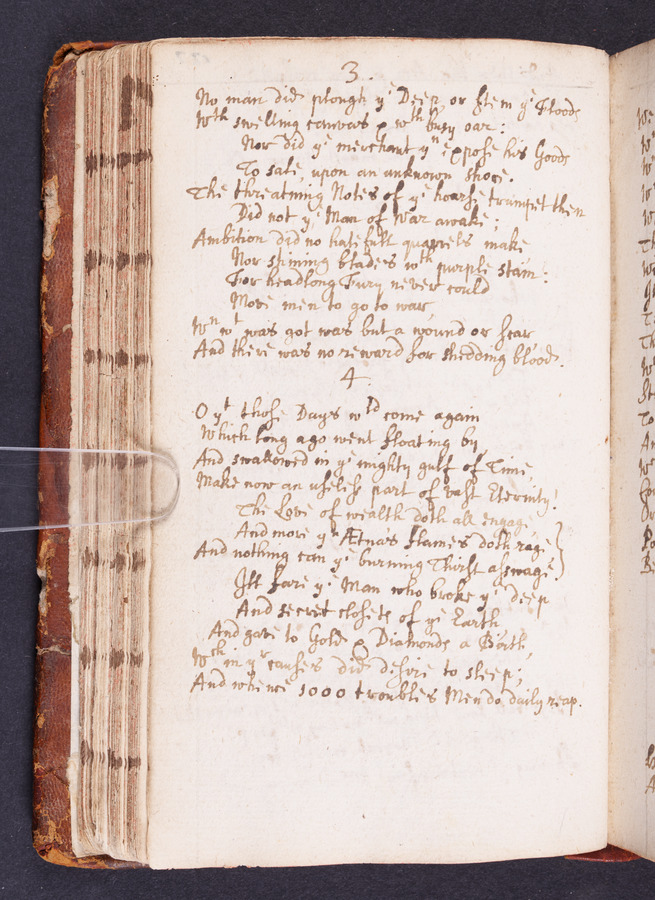 3.
No man did plough yᵉ Deep, or stem yᵉ Floods
Wᵗʰ swelling canvas & wᵗʰ busy oar:
Nor did yᵉ merchant yⁿ expose his Goods
To sale, upon an unknown shore.
The threatning Notes of yᵉ hoarse trumpet then
Did not yᵉ Man of War awake;
Ambition did no hatefull quarrels make
Nor shining blades wᵗʰ purple stain:
For headlong Fury never could
Move men to go to war,
Wⁿ wᵗ was got was but a wound or scar
And there was no reward for shedding blood.
4.
O yᵗ those Days wˡᵈ come again
Which long ago went floating by
And swallowed in yᵉ mighty gulf of Time,
Make now an useless part of vast Eternity!
The Love of wealth doth all engage
And more yⁿ Ætnas flames doth rage
And nothing can yᵉ burning Thirst asswage.
Ill fare yᵉ Man who broke yᵉ deep
And secret closets of yᵉ Earth
And gave to Gold & Diamonds a Birth,
Wᶜʰ in yʳ causes did desire to sleep;
And whence 1000 troubles Men do daily reap.